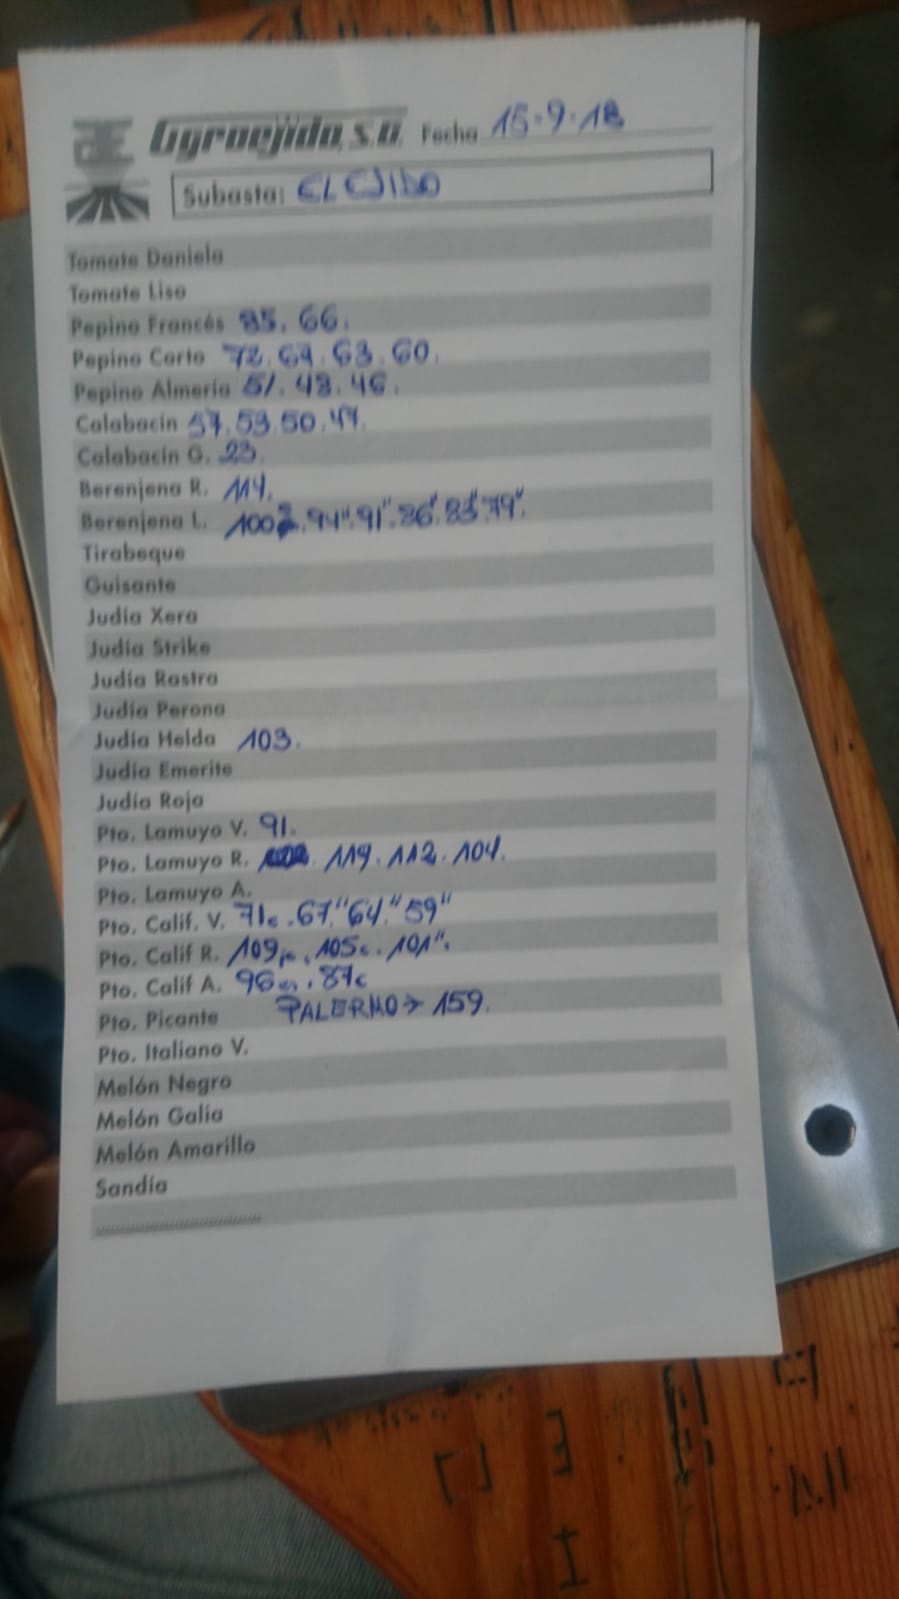 Agroejido, s.a. Fecha 15-9-18
Subasta: EL EJIDO
Tomate Daniela
Tomate Liso
Pepino Francés 85. 66.
Pepino Corto 72. 67. 63. 60.
Pepino Almería 51. 48. 46.
Calabacín 57. 53. 50. 47.
Calabacín G. 23.
Berenjena R. 114.
Berenjena L. 100 . 94". 91". 86". 83". 79".
Tirabeque
Guisante
Judía Xera
Judía Strike
Judía Rastra
Judía Perona
Judía Helda 103.
Judía Emerite
Judía Roja
Pto. Lamuyo V. 91.
Pto. Lamuyo R. 119. 112. 104.
Pto. Lamuyo A.
Pto. Calif. V. 71c. 67." 64." 59"
Pto. Calif R. 109 . 105c. 101".
Pto. Calif A. 96 . 87c
Pto. Picante PALERMO → 159.
Pto. Italiano V.
Melón Negro
Melón Galia
Melón Amarillo
Sandía